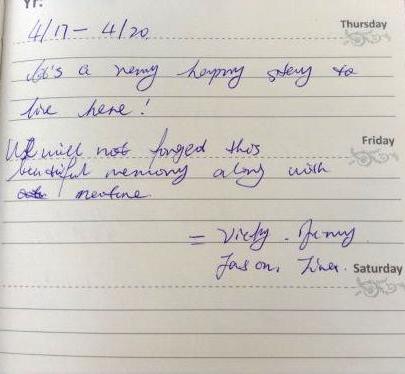 Yr:
Thursday
4/17 - 4/20
It's a very happy stay to
live here!
Friday
We will not forged this
beautiful memory along with
Vicky. Jenny
Jason. Tina.
Saturday